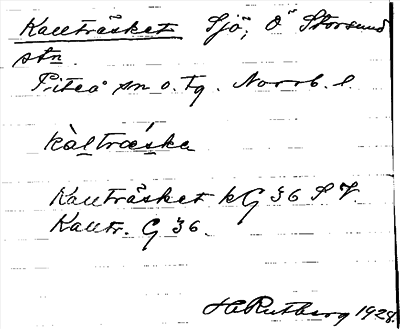 Kallträsket Sjö, Ö Storsund
stn.
Piteå sn o. tg. Norrb. l.
kàltræ̀ska
Kallträsket kG 36 S V.
Kalltr. G 36.
H. Rutberg 1928.